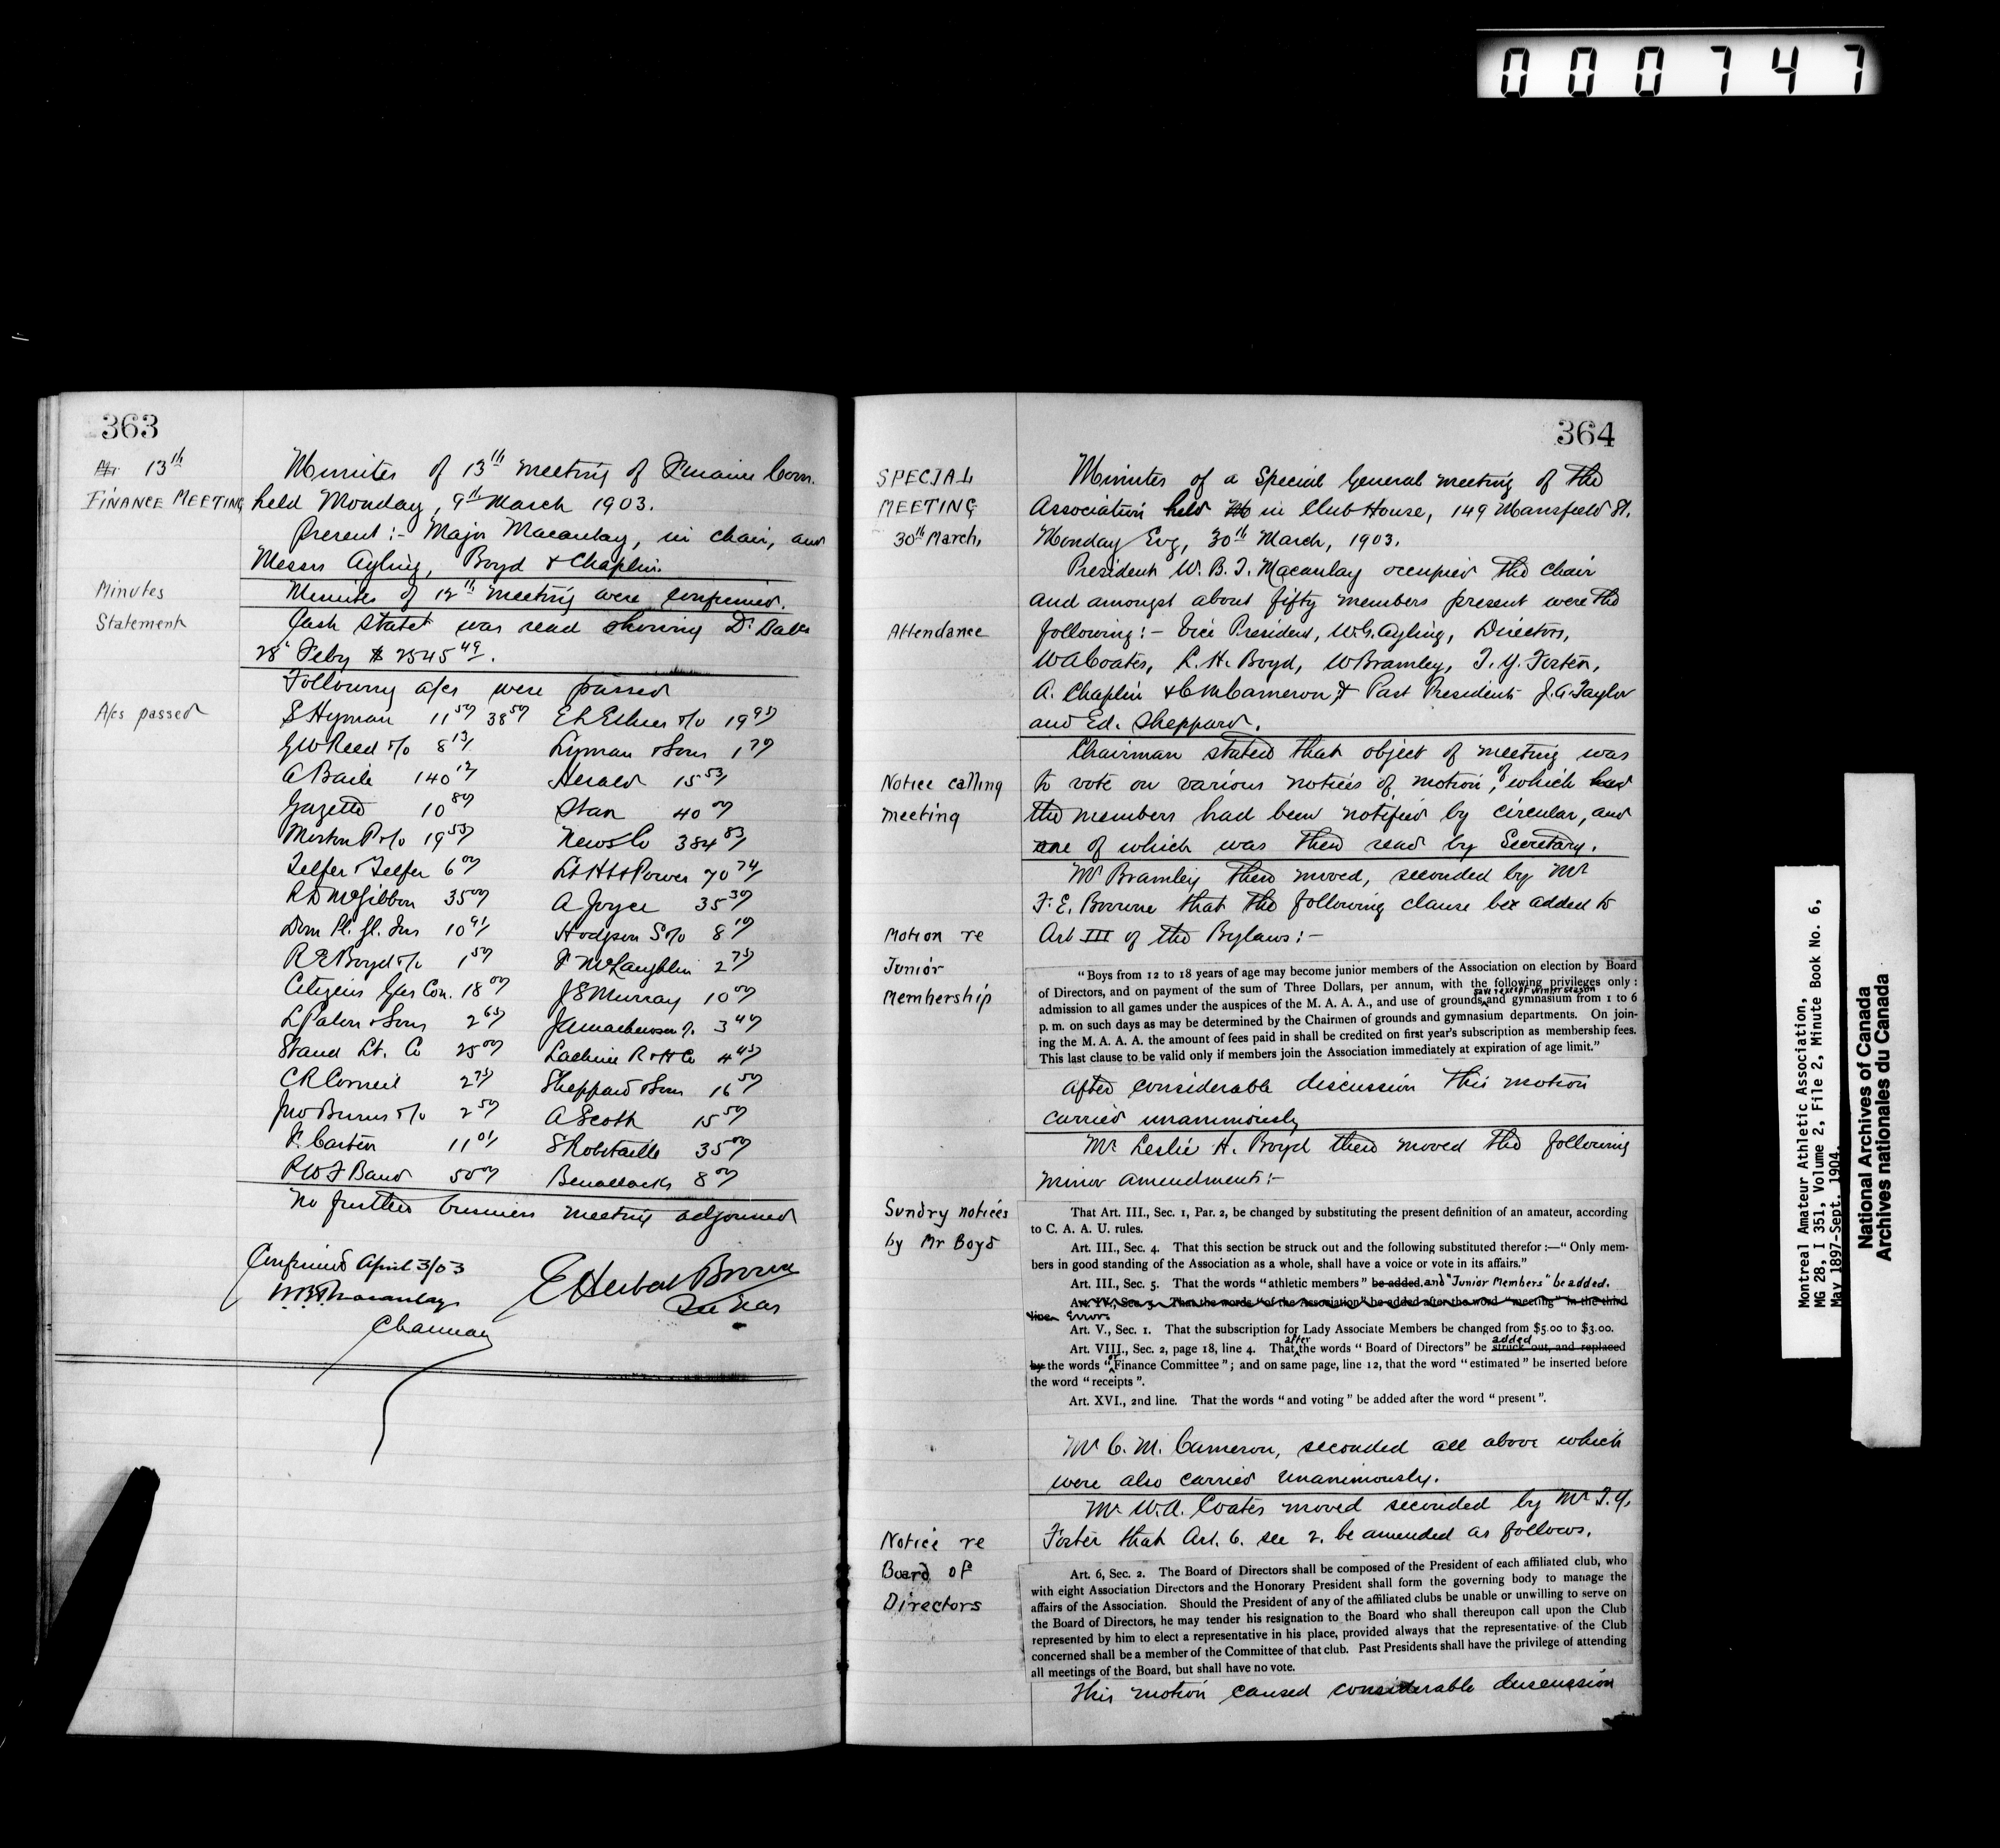 000747
363
13th
FINANCE MEETING
Minutes of 13th meeting of Finance Com.
held Monday, 9th March 1903.
Present:- Major Macaulay, in chair, and
Messrs Ayling, Boyd & Chaplin.
Minutes
Minutes of 12th meeting were confirmed.
Statement
Cash Statet was read showing Dr Balce
28" Feby $ 2545 49.
Following a/cs were passed
A/cs passed
S Hyman 11 50/ 38 50/
G W Reed & Co 8 13/ Lyman & Sons 1 70/
A Baile 140 12/ Herald 15 53/
Gazette 10 80/ Star 40 00/
Morton P & Co 19 53/ News Co 384 83/
Telfer & Telfer 6 00/ Lt Ht & Power 70 74/
R D McGibbon 35 00/ A Joyce 35 30/
Dom Pl. Gl. Ins 10 91/ Hodgson S & Co 8 10/
R E Boyd & Co 1 50/ F McLaughlin 2 75/
Citizens Gas Con. 18 00/ J S Murray 10 00/
L Paton & Sons 2 65/
Stand Lt. Co 25 00/ Lachine R & H Co 4 45/
C R Corneil 2 75/ Sheppard & Sons 16 50/
Jno Burns & Co 2 50/ A Scott 15 50/
F. Carter 11 01/ S Robitaille 35 00/
R W F Band 50 00/ Benallacks 8 00/
No further business meeting adjourned
Confirmed April 3/03
W B T Macaulay
Chairman
E Herbert Brown
Sec Treas
364
SPECIAL
MEETING
30th March,
Minutes of a Special General meeting of the
Association held in Club House, 149 Mansfield St.
Monday Evg, 30th March, 1903.
President W. B. T. Macaulay occupied the chair
and amongst about fifty members present were the
Attendance
following:- Vice President, W. G. Ayling, Directors,
W A Coates, L. H. Boyd, W Bramley, T. Y. Foster,
A. Chaplin & C M Cameron, & Past Presidents J. A. Taylor
and Ed. Sheppard.
Chairman stated that object of meeting was
Notice calling
meeting
to vote on various notices of motion, of which had
the members had been notified by circular, and
one of which was then read by Secretary.
Mr Bramley then moved, seconded by Mr
F. E. Browne that the following clause be added to
Motion re
Junior
Membership
Art III of the Bylaws:-
"Boys from 12 to 18 years of age may become junior members of the Association on election by Board
of Directors, and on payment of the sum of Three Dollars, per annum, with the following privileges only:
save & except winter season
admission to all games under the auspices of the M. A. A. A., and use of grounds and gymnasium from 1 to 6
p. m. on such days as may be determined by the Chairmen of grounds and gymnasium departments. On join-
ing the M. A. A. A. the amount of fees paid in shall be credited on first year's subscription as membership fees.
This last clause to be valid only if members join the Association immediately at expiration of age limit."
After considerable discussion this motion
carried unanimously
Mr Leslie H. Boyd then moved the following
minor amendments:-
Sundry notices
by Mr Boyd
That Art. III., Sec. 1, Par. 2, be changed by substituting the present definition of an amateur, according
to C. A. A. U. rules.
Art. III., Sec. 4. That this section be struck out and the following substituted therefor:—"Only mem-
bers in good standing of the Association as a whole, shall have a voice or vote in its affairs."
Art. III., Sec. 5. That the words "athletic members" be added. and "Junior Members" be added.
Art. IV., Sec. 3. That the words "of the Association" be added after the word "meeting" in the third
line. Error
Art. V., Sec. 1. That the subscription for Lady Associate Members be changed from $5.00 to $3.00.
after added
Art. VIII., Sec. 2, page 18, line 4. That the words "Board of Directors" be struck out, and replaced
by the words "or Finance Committee"; and on same page, line 12, that the word "estimated" be inserted before
the word "receipts".
Art. XVI., 2nd line. That the words "and voting" be added after the word "present".
Mr C. M. Cameron, seconded all above which
were also carried unanimously.
Mr W. A. Coates moved seconded by Mr T. Y.
Foster that Art. 6. sec 2. be amended as follows.
Notice re
Board of
Directors
Art. 6, Sec. 2. The Board of Directors shall be composed of the President of each affiliated club, who
with eight Association Directors and the Honorary President shall form the governing body to manage the
affairs of the Association. Should the President of any of the affiliated clubs be unable or unwilling to serve on
the Board of Directors, he may tender his resignation to the Board who shall thereupon call upon the Club
represented by him to elect a representative in his place, provided always that the representative of the Club
concerned shall be a member of the Committee of that club. Past Presidents shall have the privilege of attending
all meetings of the Board, but shall have no vote.
This motion caused considerable discussion
Montreal Amateur Athletic Association,
MG 28, I 351, Volume 2, File 2, Minute Book No. 6,
May 1897-Sept. 1904.
National Archives of Canada
Archives nationales du Canada